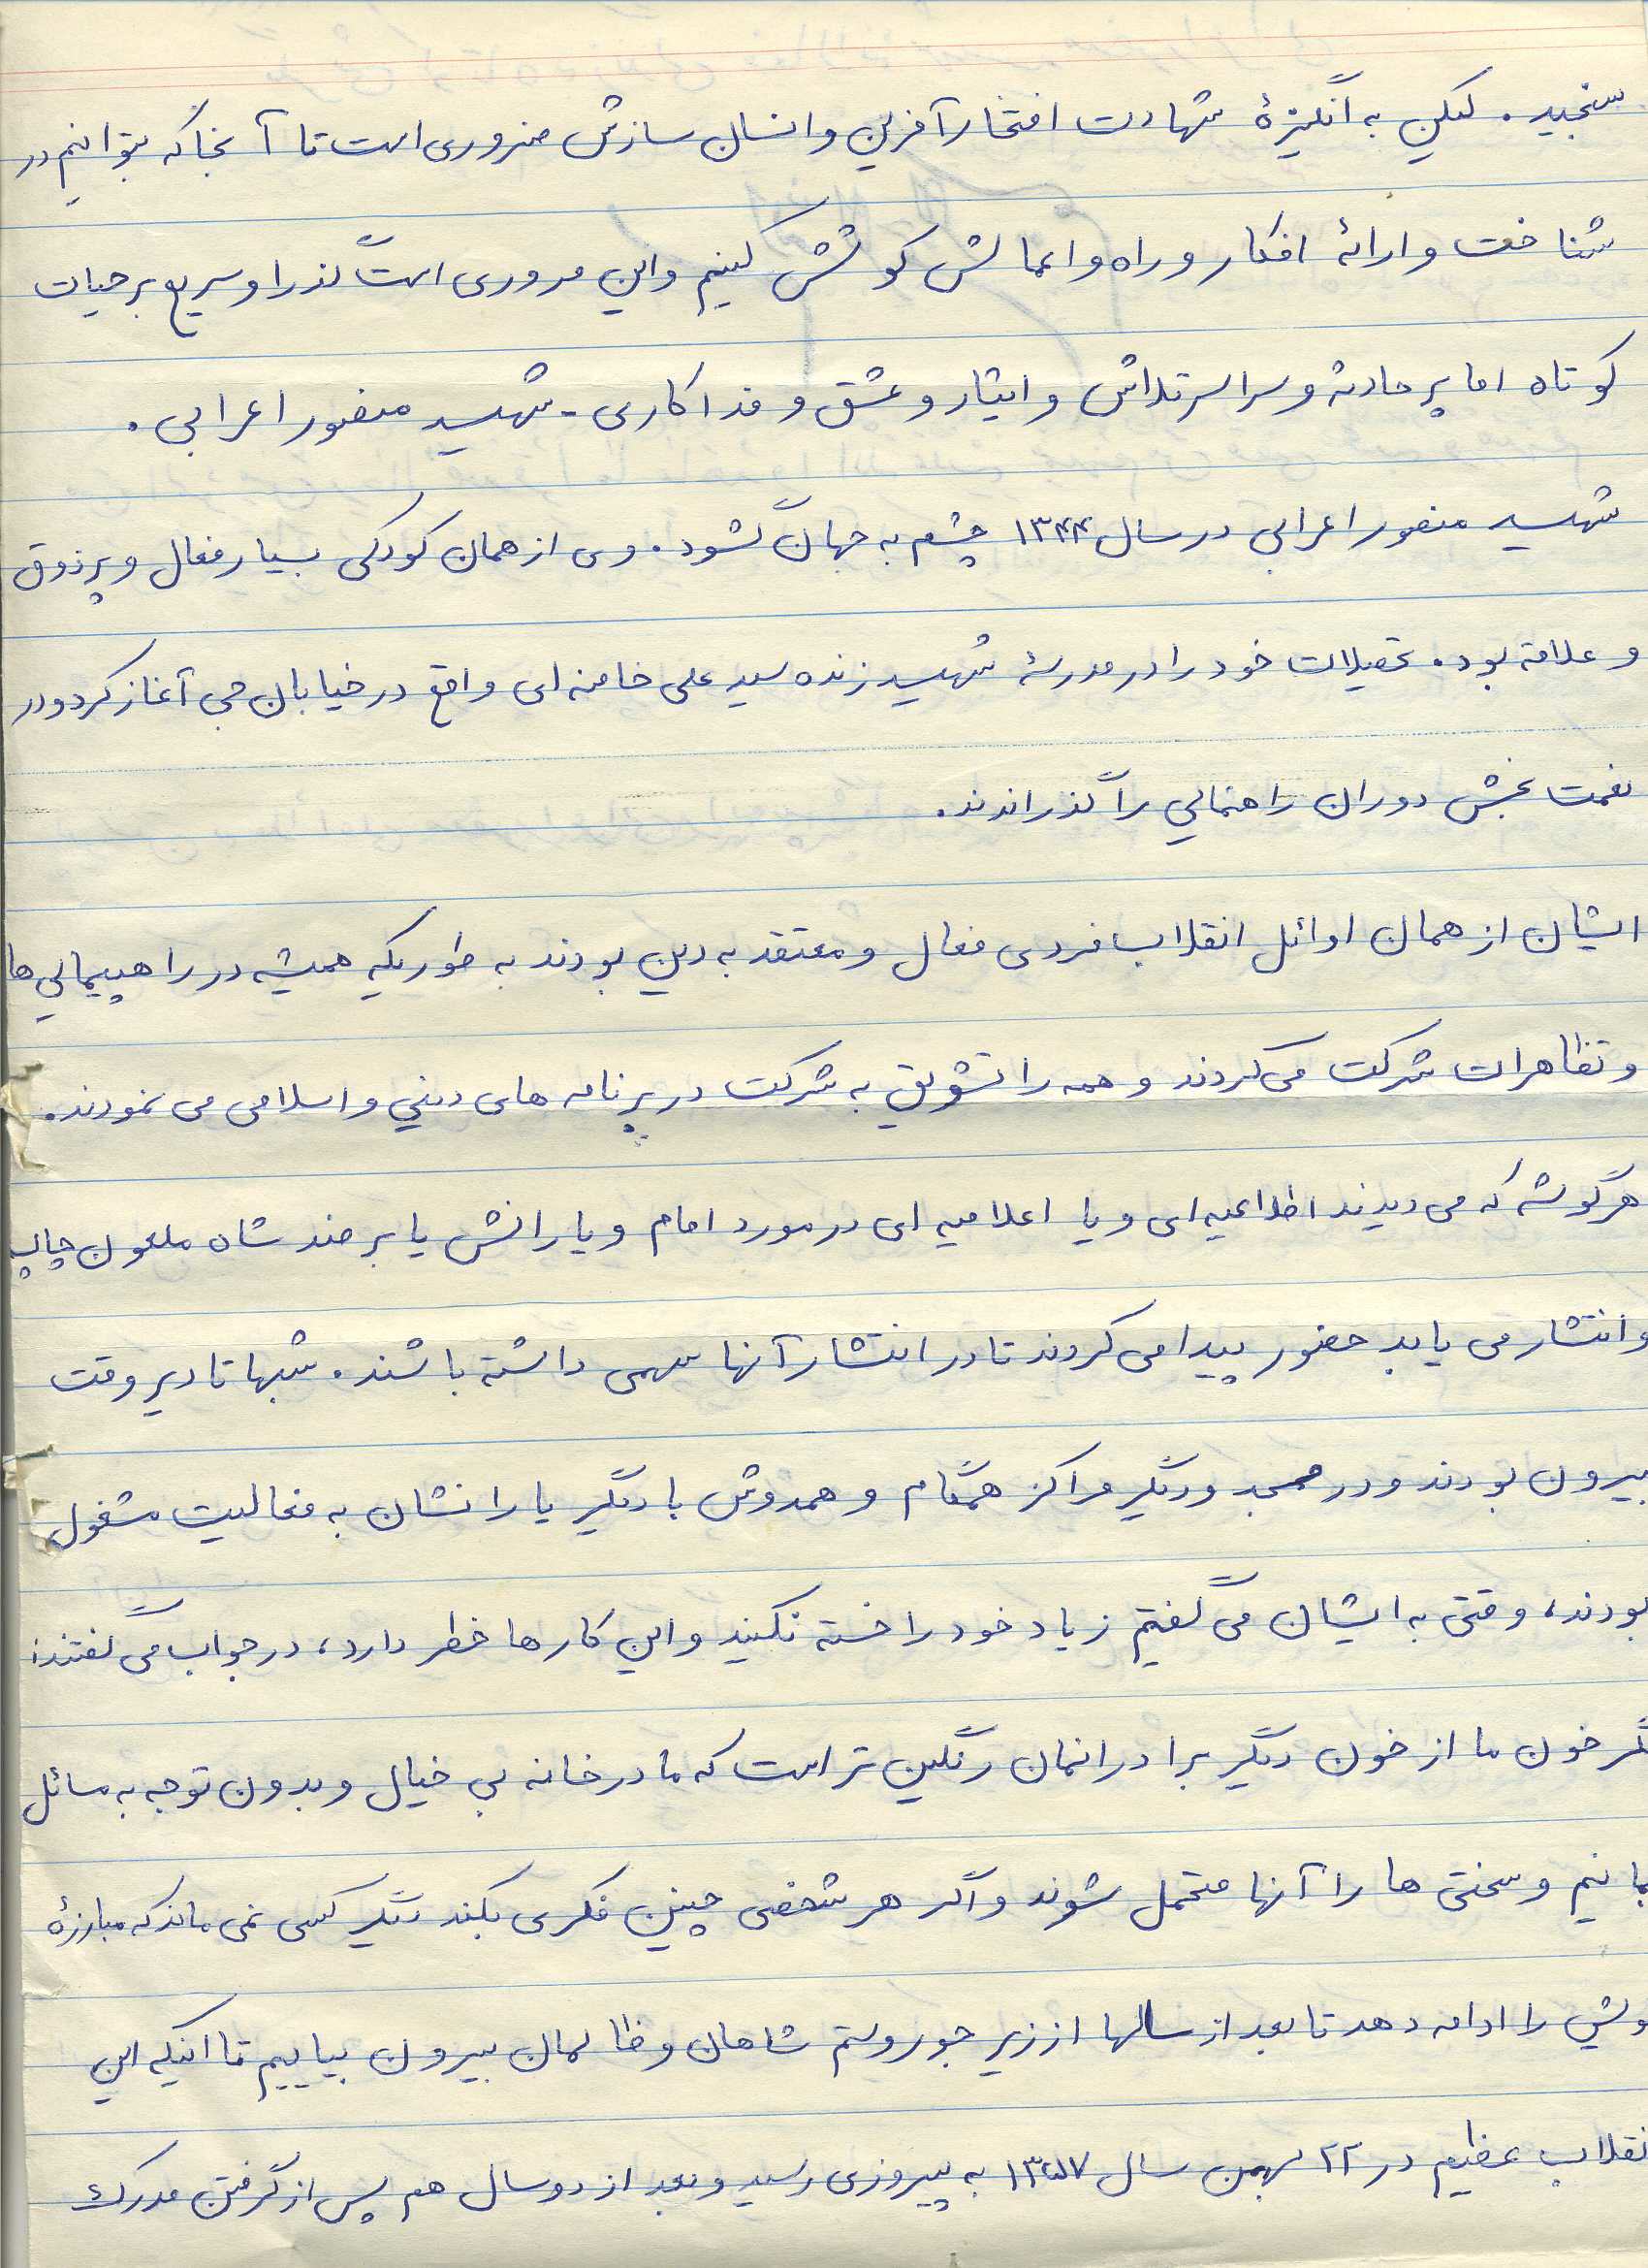 سنجید. لیکن به انگیزهٔ شهادت افتخارآفرین و انسان سازش ضروری است تا آنجا که بتوانیم در
شناخت و ارائهٔ افکار و راه و اعمالش کوشش کنیم و این مروری است گذرا و سریع بر حیات
کوتاه اما پر حادثه و سراسر تلاش و ایثار و عشق و فداکاری - شهید منصور اعرابی.
شهید منصور اعرابی در سال ۱۳۴۴ چشم به جهان گشود. وی از همان کودکی بسیار فعال و پر ذوق
و علاقه بود. تحصیلات خود را در مدرسهٔ شهید زنده سید علی خامنه ای واقع در خیابان جی آغاز کرد و در
نعمت بخش دوران راهنمایی را گذراندند.
ایشان از همان اوائل انقلاب فردی فعال و معتقد به دین بودند به طوریکه همیشه در راهپیمایی ها
و تظاهرات شرکت می کردند و همه را تشویق به شرکت در برنامه های دینی و اسلامی می نمودند.
هر گوشه که می دیدند اطلاعیه ای و یا اعلامیه ای در مورد امام و یارانش یا بر ضد شاه ملعون چاپ
و انتشار می یابد حضور پیدا می کردند تا در انتشار آنها سهمی داشته باشند. شبها تا دیر وقت
بیرون بودند و در مسجد و دیگر مراکز همگام و همدوش با دیگر یارانشان به فعالیت مشغول
بودند، وقتی به ایشان می گفتیم زیاد خود را خسته نکنید و این کارها خطر دارد، در جواب می گفتند:
مگر خون ما از خون دیگر برادرانمان رنگین تر است که ما در خانه بی خیال و بدون توجه به مسائل
بمانیم و سختی ها را آنها متحمل شوند و اگر هر شخصی چنین فکری بکند دیگر کسی نمی ماند که مبارزهٔ
ویش را ادامه دهد تا بعد از سالها از زیر جور و ستم شاهان و ظالمان بیرون بیاییم تا اینکه این
نقلاب عظیم در ۲۲ بهمن سال ۱۳۵۷ به پیروزی رسید و بعد از دو سال هم پس از گرفتن مدرک